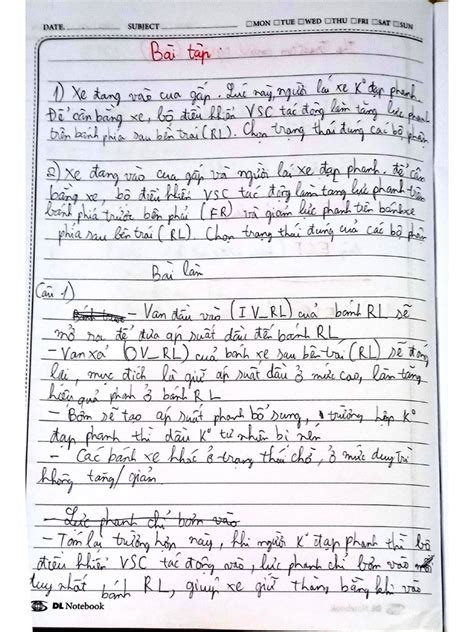 DATE SUBJECT □MON □TUE □WED □THU □FRI □SAT □SUN
Bài tập:
1) Xe đang vào cua gấp. Lúc này, người lái xe K° đạp phanh.
Để cân bằng xe, bộ điều khiển VSC tác động làm tăng lực phanh
trên bánh phía sau bên trái (RL). Chọn trạng thái đúng của các bộ phận
2) Xe đang vào cua gấp và người lái xe đạp phanh. để cân
bằng xe, bộ điều khiển VSC tác động làm tăng lực phanh trên
bánh phía trước bên phải (FR) và giảm lực phanh trên bánh xe
phía sau bên trái (RL). Chọn trạng thái đúng của các bộ phận
Bài làm
Câu 1)
- Van đầu vào (IV_RL) của bánh RL sẽ
mở ra để đưa áp suất dầu đến bánh RL
- Van xả (OV_RL) của bánh xe sau bên trái (RL) sẽ đóng
lại, mục đích là giữ áp suất dầu ở mức cao, làm tăng
hiệu quả phanh ở bánh RL
- Bơm sẽ tạo áp suất phanh bổ sung, trường hợp K°
đạp phanh thì dầu K° tự nhiên bị nén
- Các bánh xe khác ở trạng thái chờ, ở mức duy trì
không tăng/giảm
- Lực phanh chỉ bơm vào
- Tóm lại trường hợp này, khi người K° đạp phanh thì bộ
điều khiển VSC tác động vào, lực phanh chỉ dồn vào
duy nhất bánh RL, giúp xe giữ thăng bằng khi vào
DL Notebook